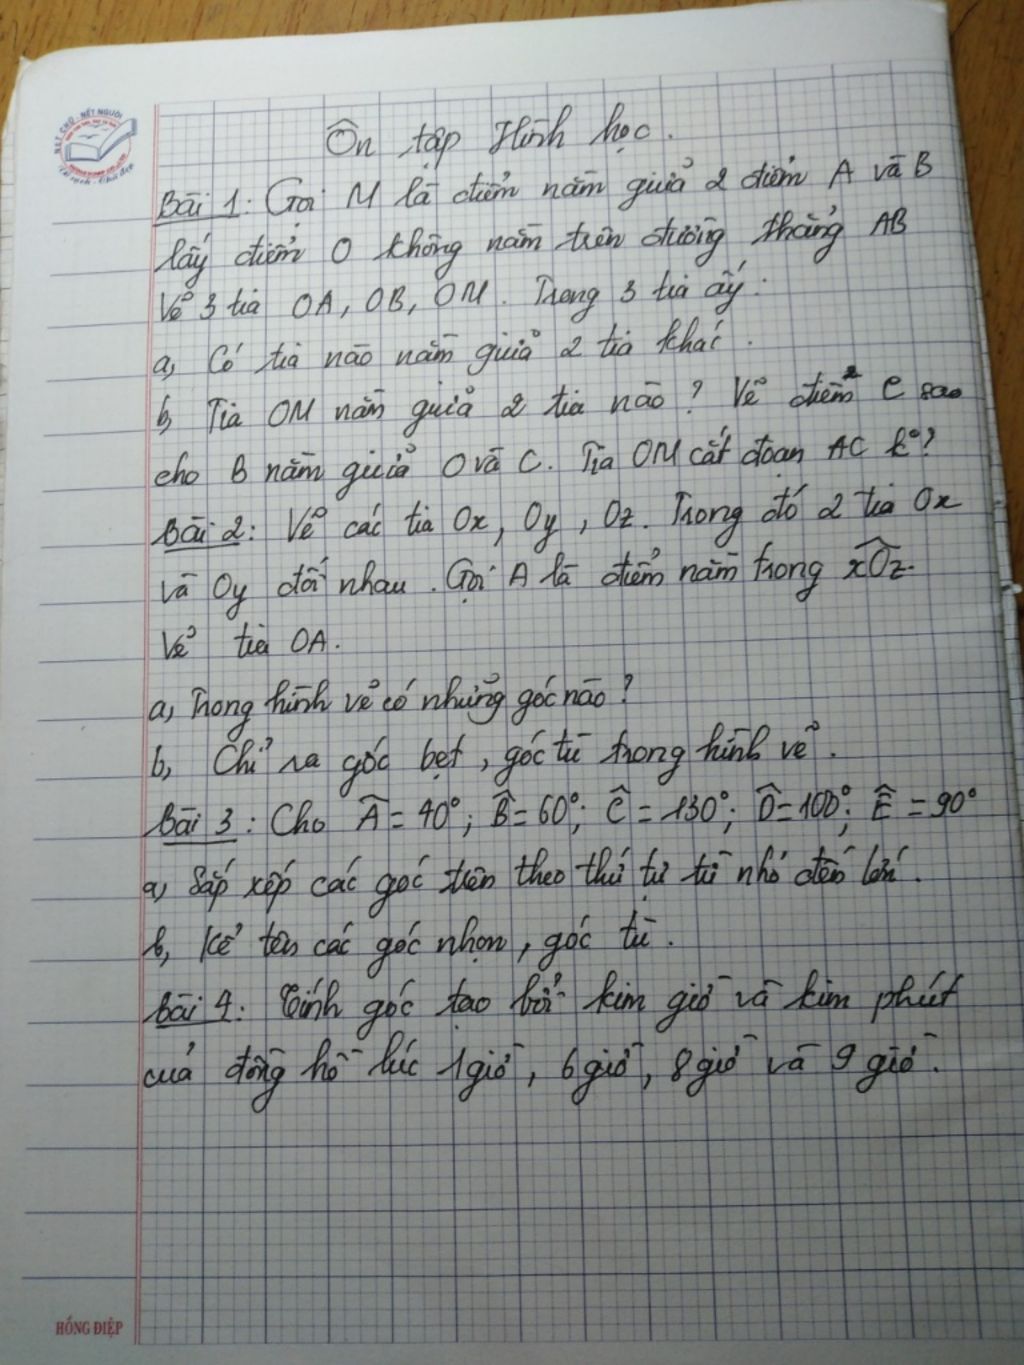 NÉT CHỮ - NẾT NGƯỜI
Ôn tập Hình học.
Bài 1: Gọi M là điểm nằm giữa 2 điểm A và B
lấy điểm O không nằm trên đường thẳng AB
Vẽ 3 tia OA, OB, OM. Trong 3 tia ấy:
a, Có tia nào nằm giữa 2 tia khác.
b, Tia OM nằm giữa 2 tia nào? Vẽ điểm C sao
cho B nằm giữa O và C. Tia OM cắt đoạn AC k°?
Bài 2: Vẽ các tia Ox, Oy, Oz. Trong đó 2 tia Ox
và Oy đối nhau. Gọi A là điểm nằm trong xÔz.
Vẽ tia OA.
a, Trong hình vẽ có những góc nào?
b, Chỉ ra góc bẹt, góc tù trong hình vẽ.
Bài 3: Cho Â = 40°; B̂ = 60°; Ĉ = 130°; D̂ = 100°; Ê = 90°
a, Sắp xếp các góc trên theo thứ tự từ nhỏ đến lớn.
b, Kể tên các góc nhọn, góc tù.
Bài 4: Tính góc tạo bởi kim giờ và kim phút
của đồng hồ lúc 1 giờ, 6 giờ, 8 giờ và 9 giờ.
HỒNG ĐIỆP